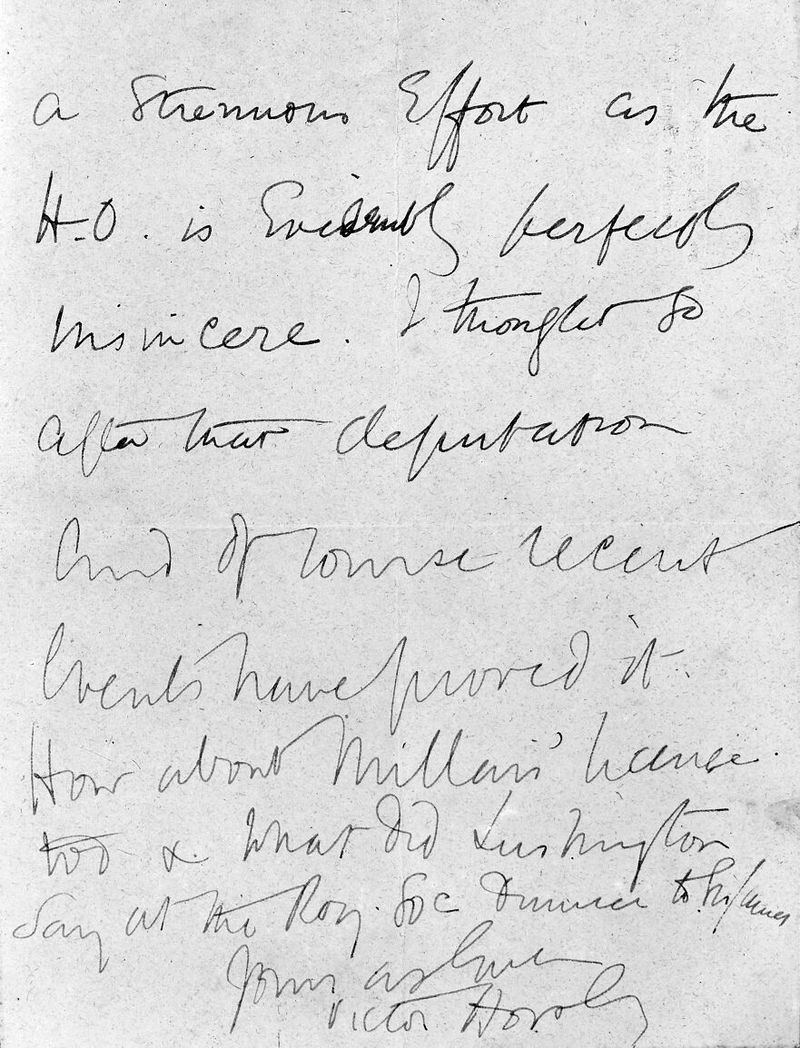 a strenuous Effort as the
H.O. is Evidently perfectly
insincere. I thought so
after that deputation
And of course recent
Events have proved it.
How about Millais' license
too & what did Lushington
say at the Roy. Soc Dinner to Sir James
Yours as Ever
Victor Horsley